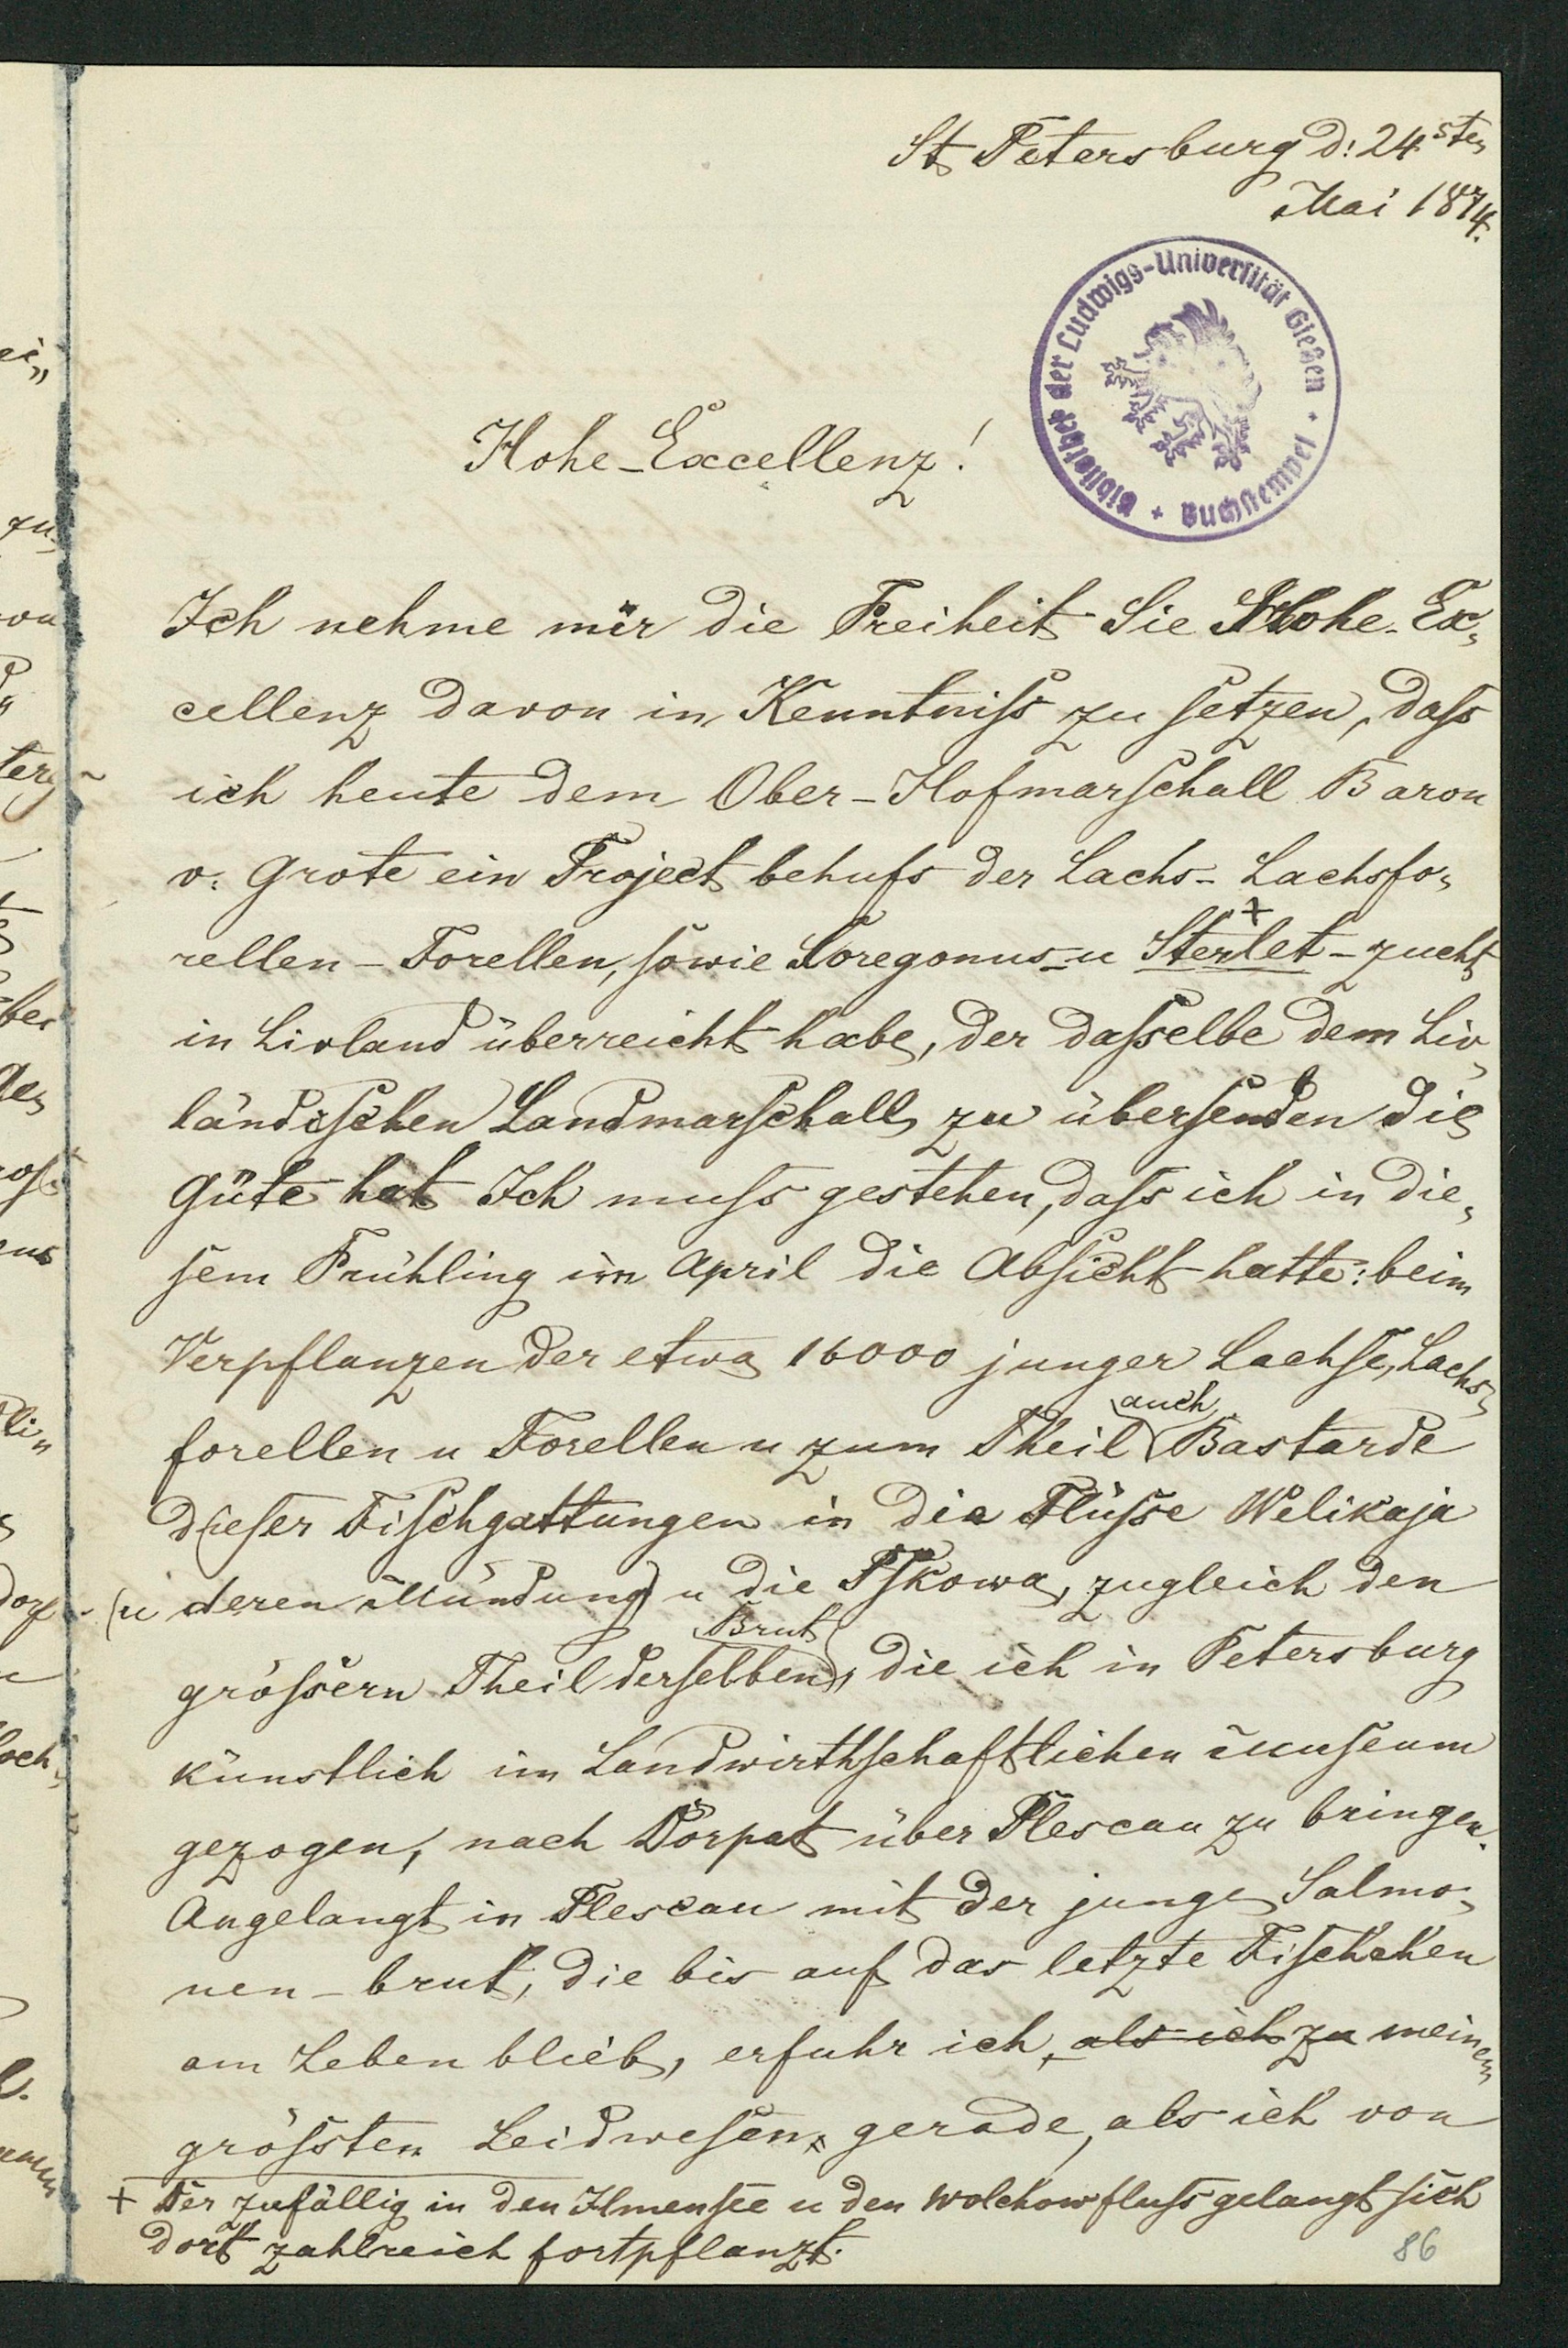 St Petersburg d: 24sten
Mai 1874.
Bibliothek der Ludwigs-Universität Gießen
* Buchstempel *
Hohe-Excellenz!
Ich nehme mir die Freiheit Sie Hohe-Ex„
cellenz davon in Kenntniss zu setzen, dass
ich heute dem Ober-Hofmarschall Baron
v: Grote ein Project behufs der Lachs- Lachsfo„
rellen- Forellen, sowie Coregonus- u Sterlet +-zucht
in Livland überreicht habe, der dasselbe dem Liv„
ländischen Landmarschall zu übersenden die
Güte hat Ich muss gestehen, dass ich in die„
sem Frühling im April die Absicht hatte: beim
Verpflanzen der etwa 16000 junger Lachse, Lachs„
forellen u Forellen u zum Theil auch Bastarde
dieser Fischgattungen in die Flüsse Welikaja
(u deren Mündung) u die Pskowa, zugleich den
grössern Theil derselben Brut, die ich in Petersburg
künstlich im Landwirthschaftlichen Museum
gezogen, nach Dorpat über Plescau zu bringen.
Angelangt in Plescau mit der junge Salmo„
nen-brut, die bis auf das letzte Fischchen
am Leben blieb, erfuhr ich, als ich zu meinem
grössten Leidwesen, gerade, als ich von
+ Der zufällig in den Ilmensee u den Wolchowfluss gelangt sich
dort zahlreich fortpflanzt.
86